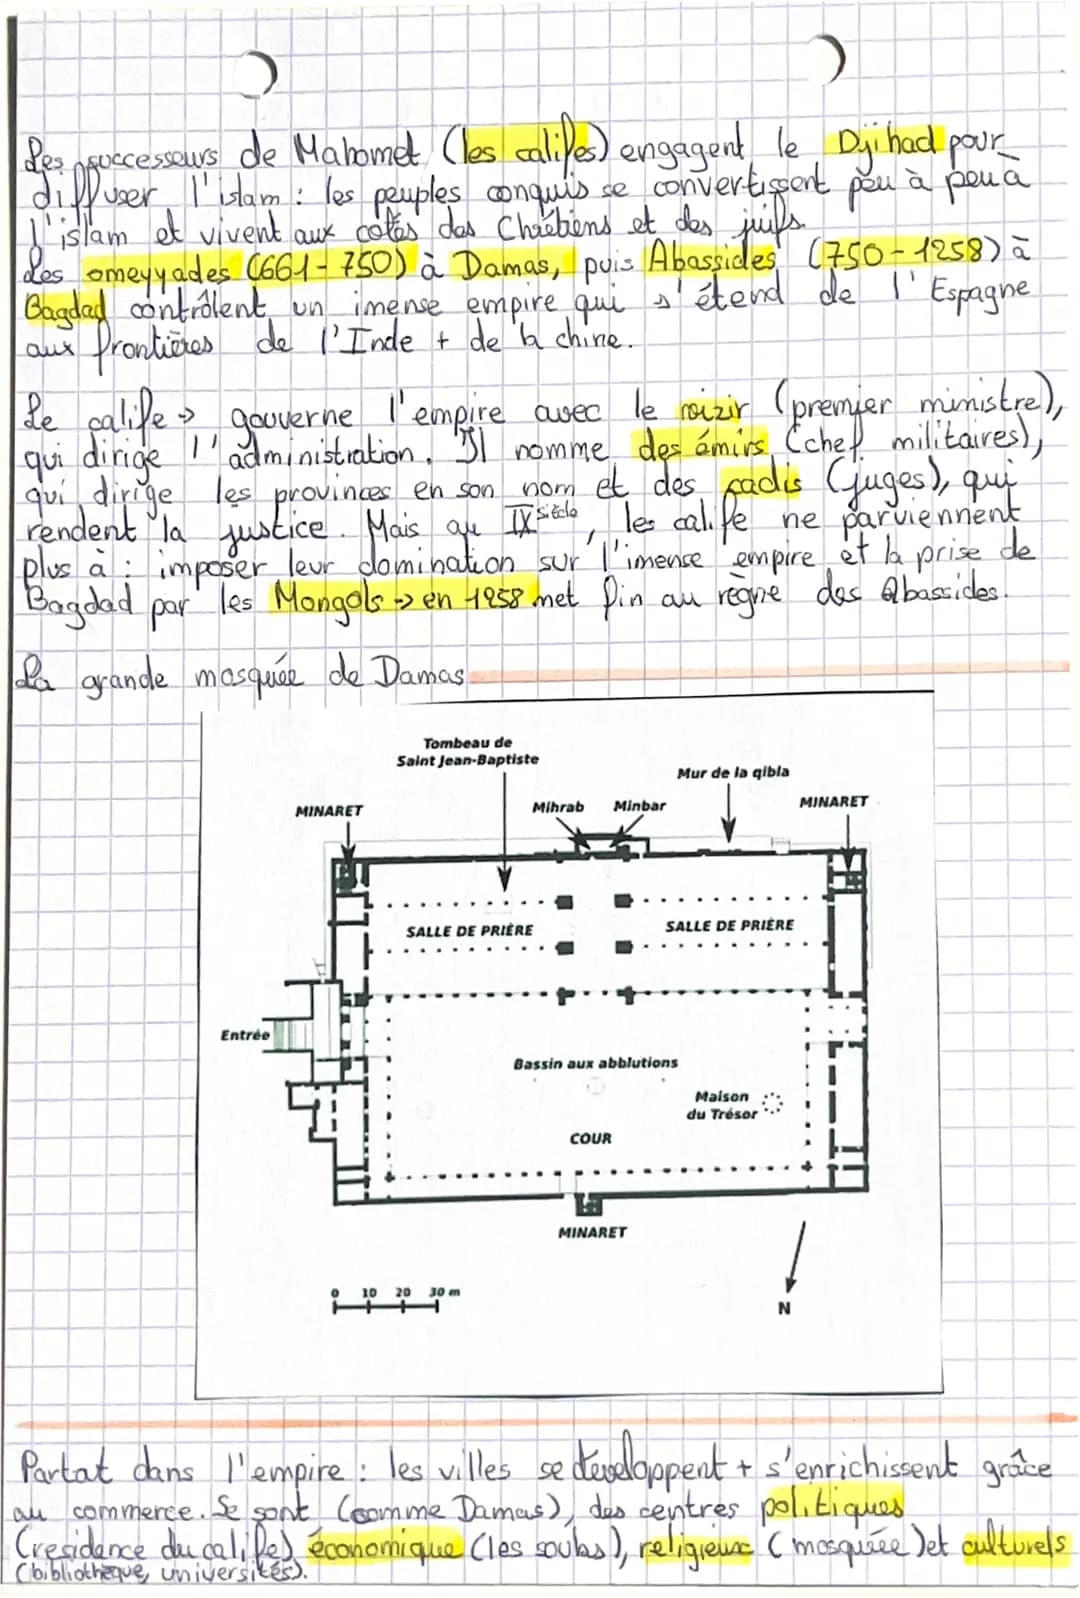 Les successeurs de Mahomet (les califes) engagent le Djihad pour
diffuser l'islam : les peuples conquis se convertissent peu à peu à
l'islam et vivent aux cotés des Chrétiens et des juifs.
Les omeyyades (661-750) à Damas, puis Abassides (750-1258) à
Bagdad contrôlent un imense empire qui s'étend de l'Espagne
aux frontières de l'Inde + de la chine.
Le calife → gouverne l'empire avec le vizir (premier ministre),
qui dirige l'administration. Il nomme des émirs (chef militaires),
qui dirige les provinces en son nom et des cadis (juges), qui
rendent la justice. Mais au IX siècle, les calife ne parviennent
plus à : imposer leur domination sur l'imense empire et la prise de
Bagdad par les Mongols → en 1258 met fin au règne des Abassides.
La grande mosquée de Damas
Tombeau de
Saint Jean-Baptiste
Mur de la qibla
MINARET
Mihrab
Minbar
MINARET
SALLE DE PRIÈRE
SALLE DE PRIÈRE
Entrée
Bassin aux abblutions
Maison
du Trésor
COUR
MINARET
0 10 20 30 m
N
Partat dans l'empire : les villes se développent + s'enrichissent grâce
au commerce. Se sont (comme Damas), des centres politiques
(residance du calife) économique (les souks), religieux (mosquée) et culturels
(bibliothèque, universités).